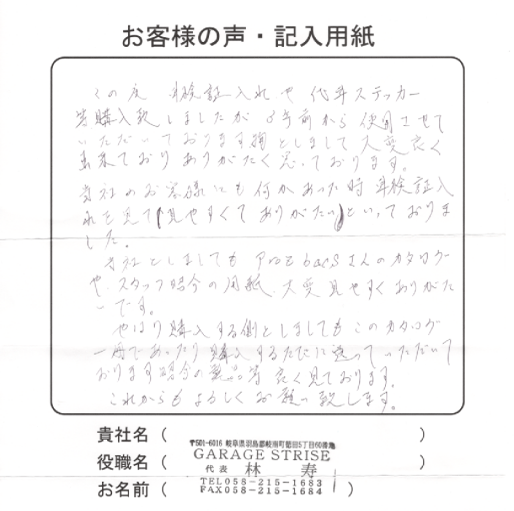 お客様の声・記入用紙
この度 車検証入れや代車ステッカー
等購入致しましたが 3年前から使用させて
いただいております 物としまして大変良く
出来ており ありがたく思っております。
当社のお客様にも何かあった時 車検証入
れを見て「見やすくてありがたい」といっておりま
した。
当社としましても Pro bacsさんのカタログ
や、スタッフ紹介の用紙、大変見やすくありがた
いです。
やはり購入する側としましても このカタログ
一冊であったり 購入するたびに送っていただいて
おります紹介の製品等 良く見ております。
これからもよろしくお願い致します。
貴社名（　）
役職名（　）
お名前（　）
〒501-6016 岐阜県羽島郡岐南町徳田5丁目60番地
GARAGE STRISE
代表 林 寿
TEL058-215-1683
FAX058-215-1684